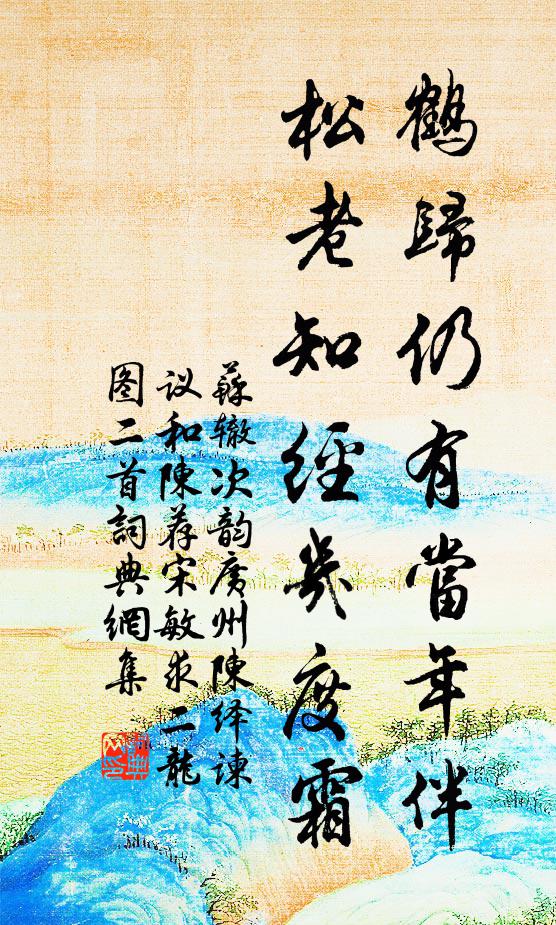 鶴歸仍有當年伴
松老知經幾度霜
蘇辙次韵廣州陳绎谏
议和陳荐宋敏求二龍
图二首詞典網集